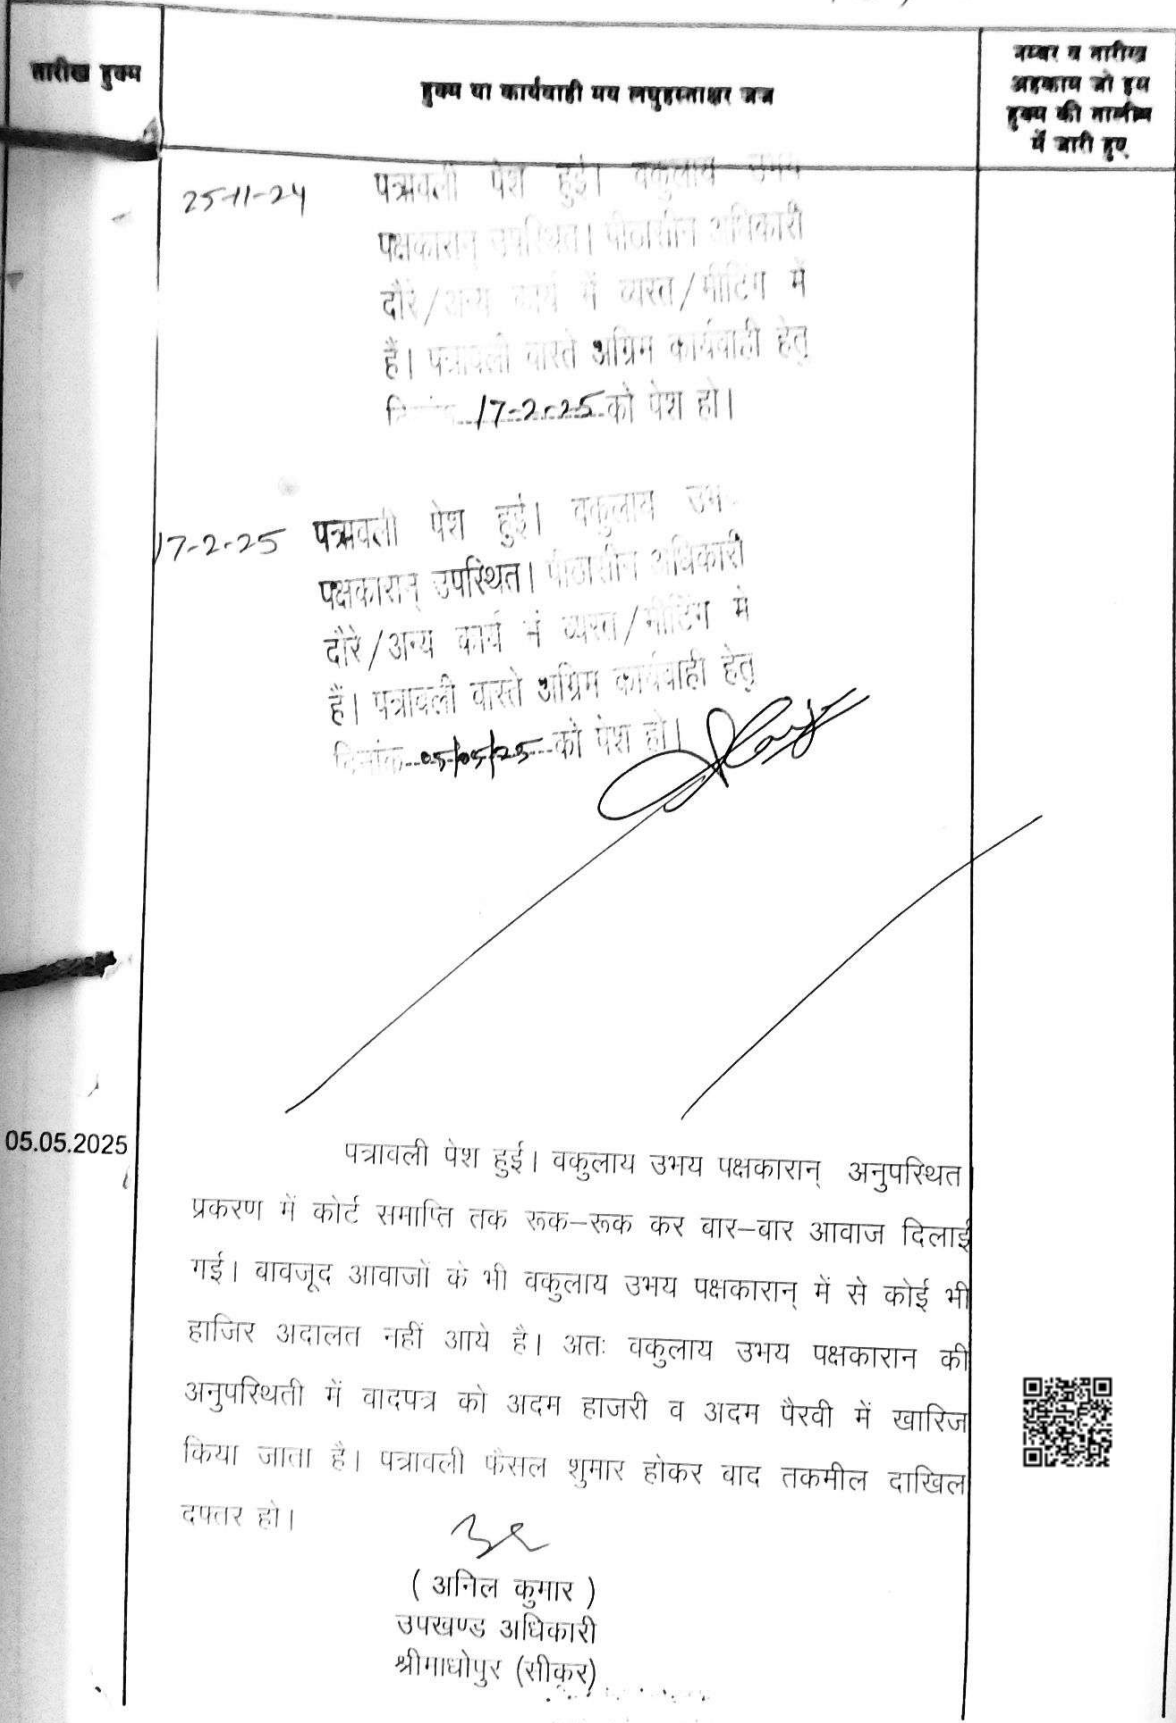 तारीख हुक्म
हुक्म या कार्यवाही मय लघुहस्ताक्षर जज
नम्बर व तारीख
अहकाम जो इस
हुक्म की तामील
में जारी हुए
25-11-24
पत्रावली पेश हुई। वकुलाय उभय
पक्षकारान् उपस्थित। पीठासीन अधिकारी
दौरे/अन्य कार्य में व्यस्त/मीटिंग में
हैं। पत्रावली वास्ते अग्रिम कार्यवाही हेतु
दिनांक 17-2-25 को पेश हो।
17-2-25
पत्रावली पेश हुई। वकुलाय उभ
पक्षकारान् उपस्थित। पीठासीन अधिकारी
दौरे/अन्य कार्य में व्यस्त/मीटिंग में
हैं। पत्रावली वास्ते अग्रिम कार्यवाही हेतु
दिनांक 05/05/25 को पेश हो।
05.05.2025
पत्रावली पेश हुई। वकुलाय उभय पक्षकारान् अनुपस्थित
प्रकरण में कोर्ट समाप्ति तक रूक–रूक कर बार–बार आवाज दिलाई
गई। बावजूद आवाजों के भी वकुलाय उभय पक्षकारान् में से कोई भी
हाजिर अदालत नहीं आये है। अतः वकुलाय उभय पक्षकारान की
अनुपस्थिती में वादपत्र को अदम हाजरी व अदम पैरवी में खारिज
किया जाता है। पत्रावली फैसल शुमार होकर बाद तकमील दाखिल
दफ्तर हो।
( अनिल कुमार )
उपखण्ड अधिकारी
श्रीमाधोपुर (सीकर)